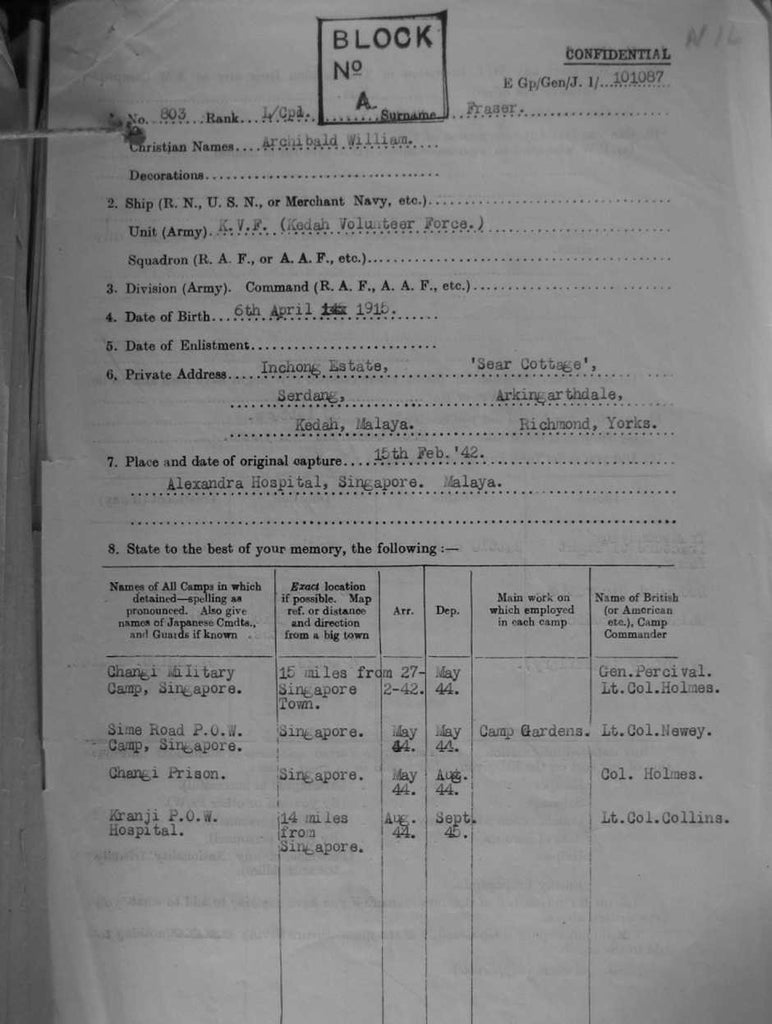 BLOCK
Nº
A.
N I L
CONFIDENTIAL
E Gp/Gen/J. 1/...101087
No. 803 Rank... L/Cpl. Surname... Fraser.
Christian Names.... Archibald William.
Decorations
2. Ship (R. N., U. S. N., or Merchant Navy, etc.)
Unit (Army). K.V.F. (Kedah Volunteer Force.)
Squadron (R. A. F., or A. A. F., etc.)
3. Division (Army). Command (R. A. F., A. A. F., etc.)
4. Date of Birth... 6th April 1915.
5. Date of Enlistment
6. Private Address.... Inchong Estate, 'Sear Cottage',
Serdang, Arkingarthdale,
Kedah, Malaya. Richmond, Yorks.
7. Place and date of original capture.... 15th Feb. '42.
Alexandra Hospital, Singapore. Malaya.
8. State to the best of your memory, the following :—
Names of All Camps in which detained—spelling as pronounced. Also give names of Japanese Cmdts., and Guards if known
Exact location if possible. Map ref. or distance and direction from a big town
Arr.
Dep.
Main work on which employed in each camp
Name of British (or American etc.), Camp Commander
Changi Military 15 miles from 27- May Gen.Percival.
Camp, Singapore. Singapore 2-42. 44. Lt.Col.Holmes.
Town.
Sime Road P.O.W. Singapore. May May Camp Gardens. Lt.Col.Newey.
Camp, Singapore. 44. 44.
Changi Prison. Singapore. May Aug. Col. Holmes.
44. 44.
Kranji P.O.W. 14 miles Aug. Sept. Lt.Col.Collins.
Hospital. from 44. 45.
Singapore.